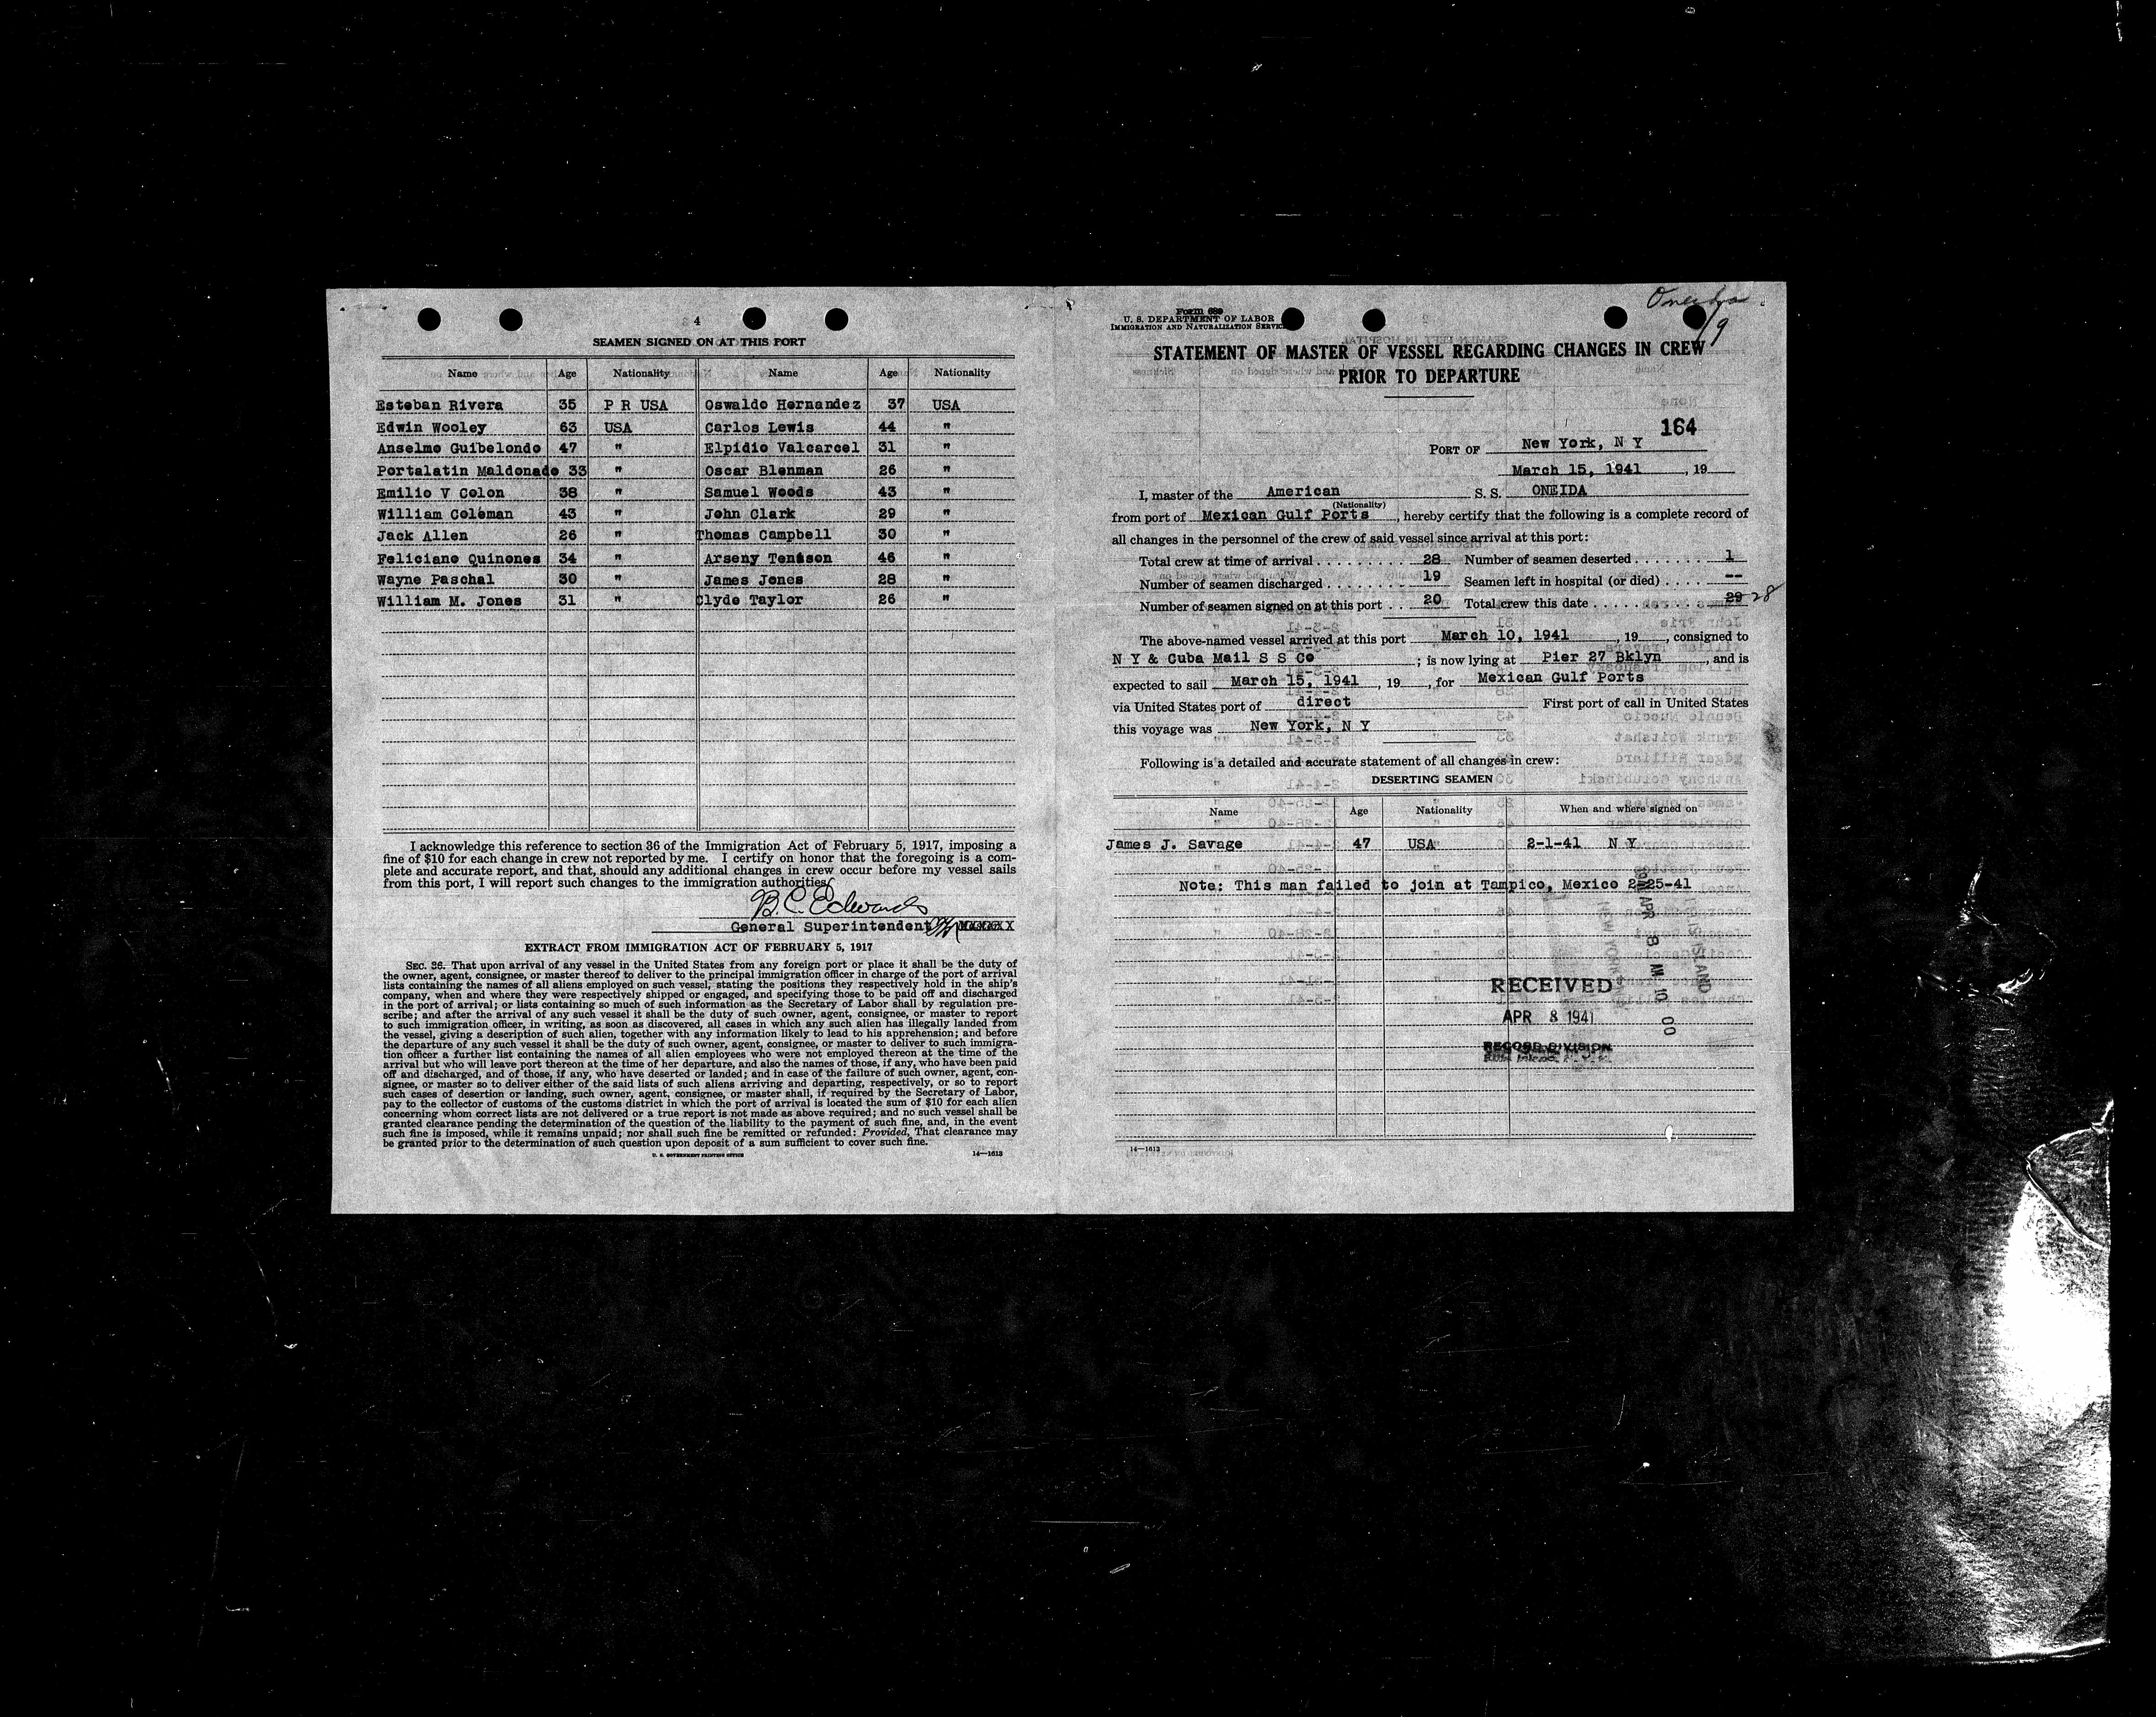 4
SEAMEN SIGNED ON AT THIS PORT
Name Age Nationality Name Age Nationality
Esteban Rivera 35 P R USA Oswaldo Hernandez 37 USA
Edwin Wooley 63 USA Carlos Lewis 44 "
Anselmo Guibelondo 47 " Elpidio Valcarcel 31 "
Portalatin Maldonado 33 " Oscar Blenman 26 "
Emilio V Colon 38 " Samuel Woods 43 "
William Coleman 43 " John Clark 29 "
Jack Allen 26 " Thomas Campbell 30 "
Feliciano Quinones 34 " Arseny Tenison 46 "
Wayne Paschal 30 " James Jones 28 "
William M. Jones 31 " Clyde Taylor 26 "
I acknowledge this reference to section 36 of the Immigration Act of February 5, 1917, imposing a
fine of $10 for each change in crew not reported by me. I certify on honor that the foregoing is a com-
plete and accurate report, and that, should any additional changes in crew occur before my vessel sails
from this port, I will report such changes to the immigration authorities.
B. C. Edwards
General Superintendent
EXTRACT FROM IMMIGRATION ACT OF FEBRUARY 5, 1917
SEC. 36. That upon arrival of any vessel in the United States from any foreign port or place it shall be the duty of
the owner, agent, consignee, or master thereof to deliver to the principal immigration officer in charge of the port of arrival
lists containing the names of all aliens employed on such vessel, stating the positions they respectively hold in the ship's
company, when and where they were respectively shipped or engaged, and specifying those to be paid off and discharged
in the port of arrival; or lists containing so much of such information as the Secretary of Labor shall by regulation pre-
scribe; and after the arrival of any such vessel it shall be the duty of such owner, agent, consignee, or master to report
to such immigration officer, in writing, as soon as discovered, all cases in which any such alien has illegally landed from
the vessel, giving a description of such alien, together with any information likely to lead to his apprehension; and before
the departure of any such vessel it shall be the duty of such owner, agent, consignee, or master to deliver to such immigra-
tion officer a further list containing the names of all alien employees who were not employed thereon at the time of the
arrival but who will leave port thereon at the time of her departure, and also the names of those, if any, who have been paid
off and discharged, and of those, if any, who have deserted or landed; and in case of the failure of such owner, agent, con-
signee, or master so to deliver either of the said lists of such aliens arriving and departing, respectively, or so to report
such cases of desertion or landing, such owner, agent, consignee, or master shall, if required by the Secretary of Labor,
pay to the collector of customs of the customs district in which the port of arrival is located the sum of $10 for each alien
concerning whom correct lists are not delivered or a true report is not made as above required; and no such vessel shall be
granted clearance pending the determination of the question of the liability to the payment of such fine, and, in the event
such fine is imposed, while it remains unpaid; nor shall such fine be remitted or refunded: Provided, That clearance may
be granted prior to the determination of such question upon deposit of a sum sufficient to cover such fine.
U. S. GOVERNMENT PRINTING OFFICE 14—1613
Oneida
9
Form 689
U. S. DEPARTMENT OF LABOR
IMMIGRATION AND NATURALIZATION SERVICE
STATEMENT OF MASTER OF VESSEL REGARDING CHANGES IN CREW
PRIOR TO DEPARTURE
164
PORT OF New York, N Y
March 15, 1941, 19
I, master of the American S. S. ONEIDA
(Nationality)
from port of Mexican Gulf Ports, hereby certify that the following is a complete record of
all changes in the personnel of the crew of said vessel since arrival at this port:
Total crew at time of arrival 28 Number of seamen deserted 1
Number of seamen discharged 19 Seamen left in hospital (or died) --
Number of seamen signed on at this port 20 Total crew this date 29 28
The above-named vessel arrived at this port March 10, 1941, 19, consigned to
N Y & Cuba Mail S S Co; is now lying at Pier 27 Bklyn, and is
expected to sail March 15, 1941, 19, for Mexican Gulf Ports
via United States port of direct First port of call in United States
this voyage was New York, N Y
Following is a detailed and accurate statement of all changes in crew:
DESERTING SEAMEN
Name Age Nationality When and where signed on
James J. Savage 47 USA 2-1-41 N Y
Note: This man failed to join at Tampico, Mexico 2-25-41
1941 APR 8 AM 10 00
ELLIS ISLAND
NEW YORK
RECEIVED
APR 8 1941
RECORD DIVISION
14—1613